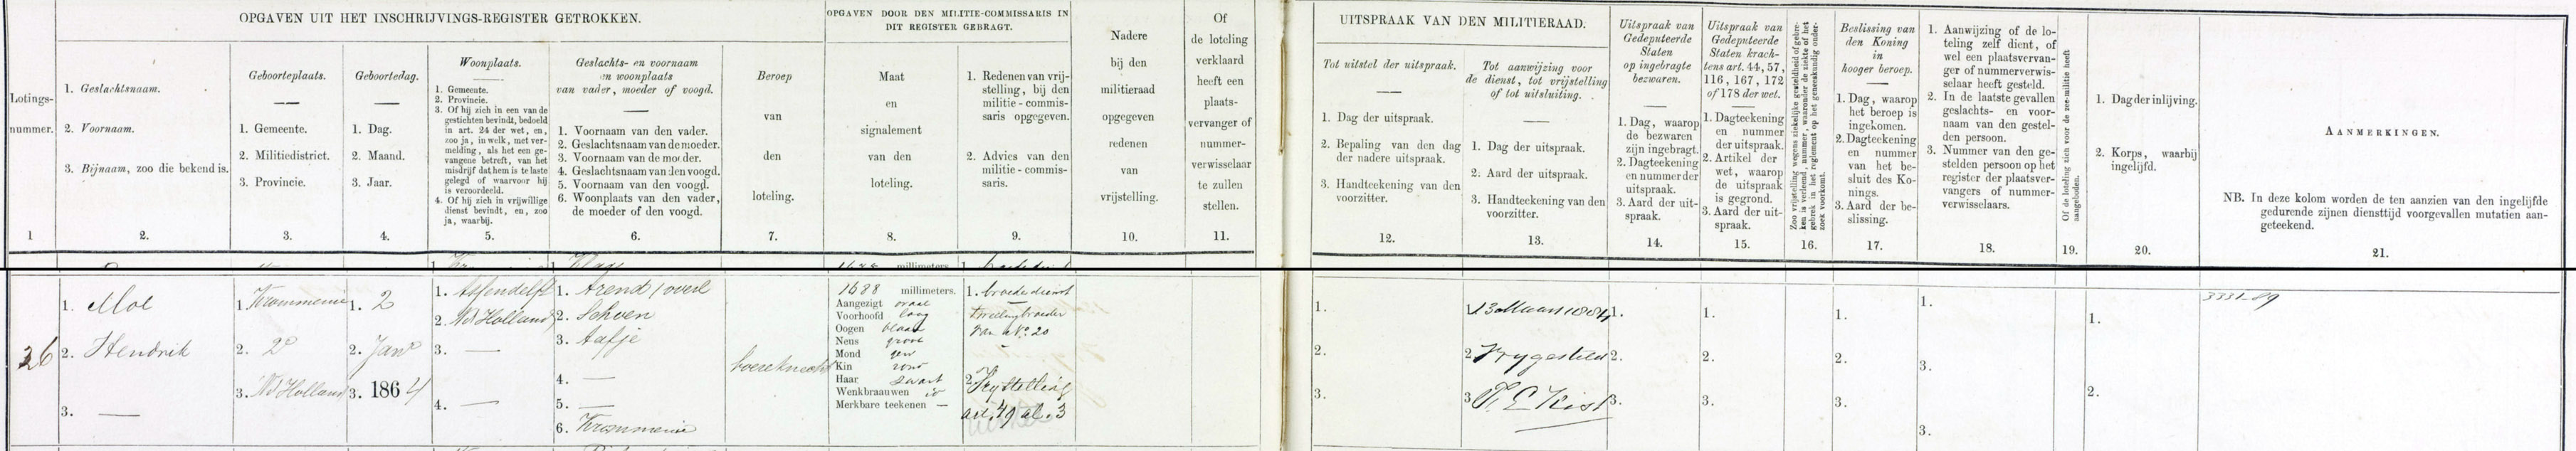 OPGAVEN UIT HET INSCHRIJVINGS-REGISTER GETROKKEN.
OPGAVEN DOOR DEN MILITIE-COMMISSARIS IN
DIT REGISTER GEBRAGT.
Lotings-
nummer.
1
1. Geslachtsnaam.
2. Voornaam.
3. Bijnaam, zoo die bekend is.
2.
Geboorteplaats.
1. Gemeente.
2. Militiedistrict.
3. Provincie.
3.
Geboortedag.
1. Dag.
2. Maand.
3. Jaar.
4.
Woonplaats.
1. Gemeente.
2. Provincie.
3. Of hij zich in een van de
gestichten bevindt, bedoeld
in art. 24 der wet, en,
zoo ja, in welk, met ver-
melding, als het een ge-
vangene betreft, van het
misdrijf dat hem is te laste
gelegd of waarvoor hij
is veroordeeld.
4. Of hij zich in vrijwillige
dienst bevindt, en, zoo
ja, waarbij.
5.
Geslachts- en voornaam
en woonplaats
van vader, moeder of voogd.
1. Voornaam van den vader.
2. Geslachtsnaam van de moeder.
3. Voornaam van de moeder.
4. Geslachtsnaam van den voogd.
5. Voornaam van den voogd.
6. Woonplaats van den vader,
de moeder of den voogd.
6.
Beroep
van
den
loteling.
7.
Maat
en
signalement
van den
loteling.
8.
1. Redenen van vrij-
stelling, bij den
militie-commis-
saris opgegeven.
2. Advies van den
militie-commis-
saris.
9.
Nadere
bij den
militieraad
opgegeven
redenen
van
vrijstelling.
10.
Of
de loteling
verklaard
heeft een
plaats-
vervanger of
nummer-
verwisselaar
te zullen
stellen.
11.
UITSPRAAK VAN DEN MILITIERAAD.
Tot uitstel der uitspraak.
1. Dag der uitspraak.
2. Bepaling van den dag
der nadere uitspraak.
3. Handteekening van den
voorzitter.
12.
Tot aanwijzing voor
de dienst, tot vrijstelling
of tot uitsluiting.
1. Dag der uitspraak.
2. Aard der uitspraak.
3. Handteekening van den
voorzitter.
13.
Uitspraak van
Gedeputeerde
Staten
op ingebragte
bezwaren.
1. Dag, waarop
de bezwaren
zijn ingebragt.
2. Dagteekening
en nummer der
uitspraak.
3. Aard der uit-
spraak.
14.
Uitspraak van
Gedeputeerde
Staten krach-
tens art. 44, 57,
116, 167, 172
of 178 der wet.
1. Dagteekening
en nummer
der uitspraak.
2. Artikel der
wet, waarop
de uitspraak
is gegrond.
3. Aard der uit-
spraak.
15.
Zoo vrijstelling wegens ziekelijke gesteldheid of gebre-
ken is verleend, nummer, waaronder de ziekte of het
gebrek in het reglement op het geneeskundig onder-
zoek voorkomt.
16.
Beslissing van
den Koning
in
hooger beroep.
1. Dag, waarop
het beroep is
ingekomen.
2. Dagteekening
en nummer
van het be-
sluit des Ko-
nings.
3. Aard der be-
slissing.
17.
1. Aanwijzing of de lo-
teling zelf dient, of
wel een plaatsvervan-
ger of nummerverwis-
selaar heeft gesteld.
2. In de laatste gevallen
geslachts- en voor-
naam van den gestel-
den persoon.
3. Nummer van den ge-
stelden persoon op het
register der plaatsver-
vangers of nummer-
verwisselaars.
18.
Of de loteling zich voor de zee-militie heeft
aangeboden.
19.
1. Dag der inlijving.
2. Korps, waarbij
ingelijfd.
20.
AANMERKINGEN.
NB. In deze kolom worden de ten aanzien van den ingelijfde
gedurende zijnen diensttijd voorgevallen mutatien aan-
geteekend.
21.
26
1. Mol
2. Hendrik
3. —
1. Krommenie
2. do
3. Nd Holland
1. 2
2. Jany
3. 1864
1. Assendelft
2. Nd Holland
3. —
4. —
1. Arend / overl
2. Schoen
3. Aafje
4. —
5. —
6. Krommenie
boereknecht
1688 millimeters.
Aangezigt ovaal
Voorhoofd laag
Oogen blaau
Neus groot
Mond gew
Kin rond
Haar zwart
Wenkbraauwen id
Merkbare teekenen —
1. broederdienst
tweelingbroeder
van No. 20
2. Vrystelling
art. 49 al. 3
1.
2.
3.
1. 13 Maart 1884
2. Vrygesteld
3.
1.
2.
3.
1.
2.
3.
1.
2.
3.
1.
3.
3.
1.
2.
3331-89